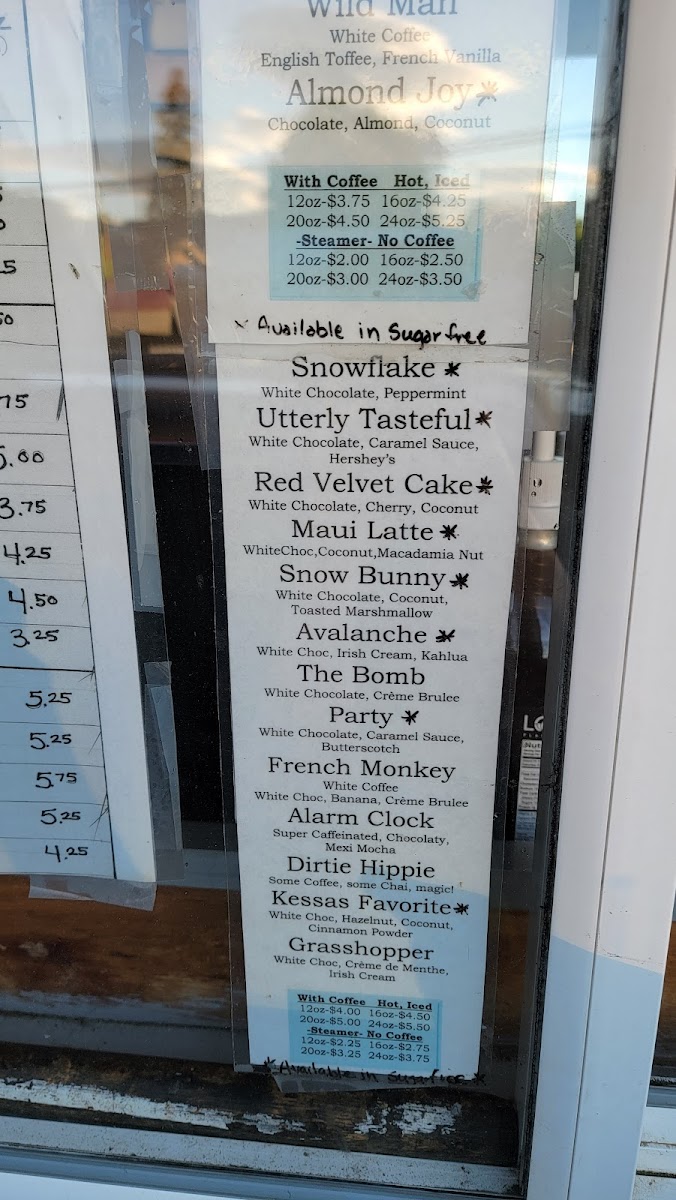 5
0
5
50
75
5.00
3.75
4.25
4.50
3.25
5.25
5.25
5.75
5.25
4.25
Wild Man
White Coffee
English Toffee, French Vanilla
Almond Joy*
Chocolate, Almond, Coconut
With Coffee Hot, Iced
12oz-$3.75 16oz-$4.25
20oz-$4.50 24oz-$5.25
-Steamer- No Coffee
12oz-$2.00 16oz-$2.50
20oz-$3.00 24oz-$3.50
* Available in Sugarfree
Snowflake *
White Chocolate, Peppermint
Utterly Tasteful*
White Chocolate, Caramel Sauce,
Hershey's
Red Velvet Cake*
White Chocolate, Cherry, Coconut
Maui Latte *
WhiteChoc,Coconut,Macadamia Nut
Snow Bunny*
White Chocolate, Coconut,
Toasted Marshmallow
Avalanche *
White Choc, Irish Cream, Kahlua
The Bomb
White Chocolate, Crème Brulee
Party *
White Chocolate, Caramel Sauce,
Butterscotch
French Monkey
White Coffee
White Choc, Banana, Crème Brulee
Alarm Clock
Super Caffeinated, Chocolaty,
Mexi Mocha
Dirtie Hippie
Some Coffee, some Chai, magic!
Kessas Favorite*
White Choc, Hazelnut, Coconut,
Cinnamon Powder
Grasshopper
White Choc, Crème de Menthe,
Irish Cream
With Coffee Hot, Iced
12oz-$4.00 16oz-$4.50
20oz-$5.00 24oz-$5.50
-Steamer- No Coffee
12oz-$2.25 16oz-$2.75
20oz-$3.25 24oz-$3.75
* Available in Sugarfree *